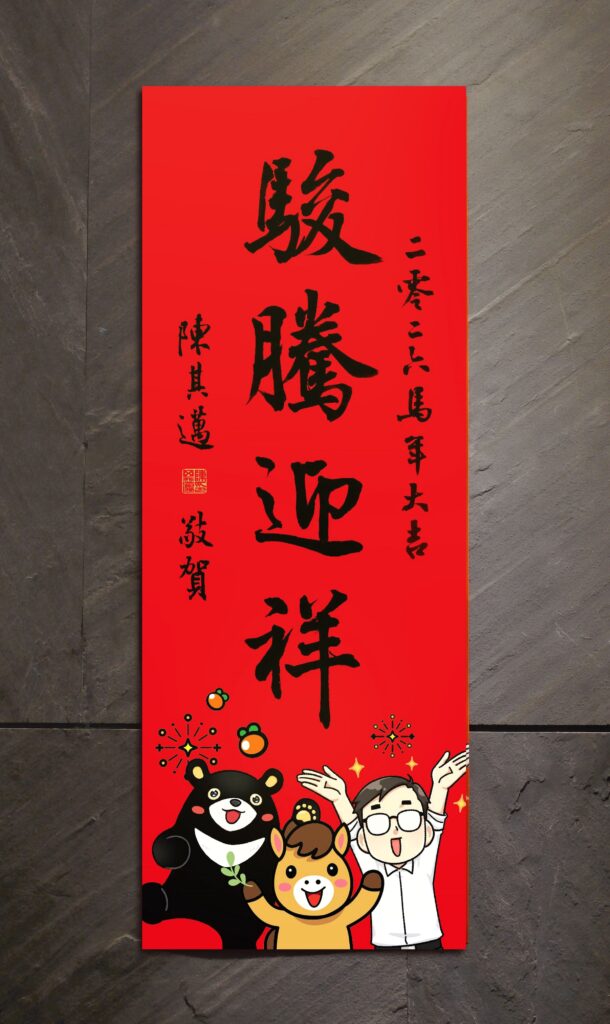 二零二六馬年大吉
駿騰迎祥
陳其邁
敬賀